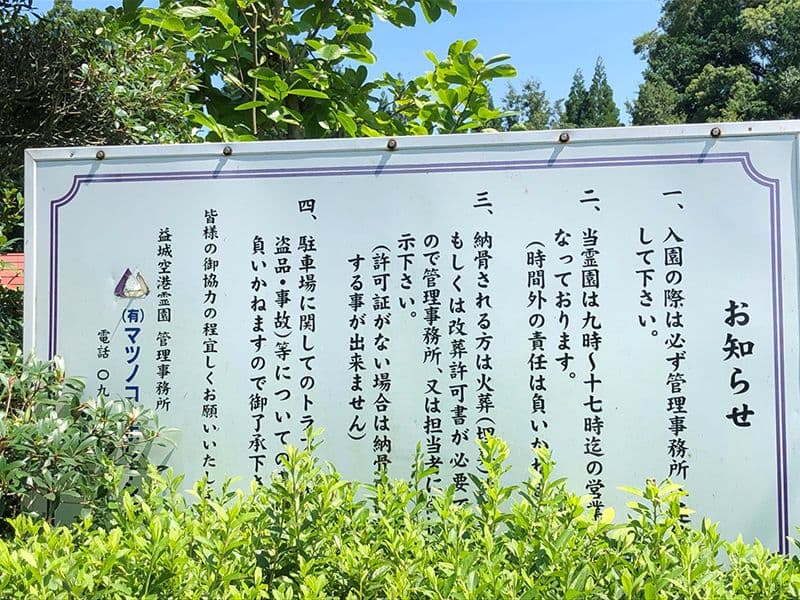 お知らせ
一、入園の際は必ず管理事務所
して下さい。
二、当霊園は九時～十七時迄の営業
なっております。
(時間外の責任は負いか
三、納骨される方は火葬(埋
もしくは改葬許可書が必要で
ので管理事務所、又は担当者に
示下さい。
(許可証がない場合は納骨
する事が出来ません)
四、駐車場に関してのトラ
盗品・事故)等についての
負いかねますので御了承下
皆様の御協力の程宜しくお願いいたし
益城空港霊園 管理事務所
(有)マツノコ
電話 〇九